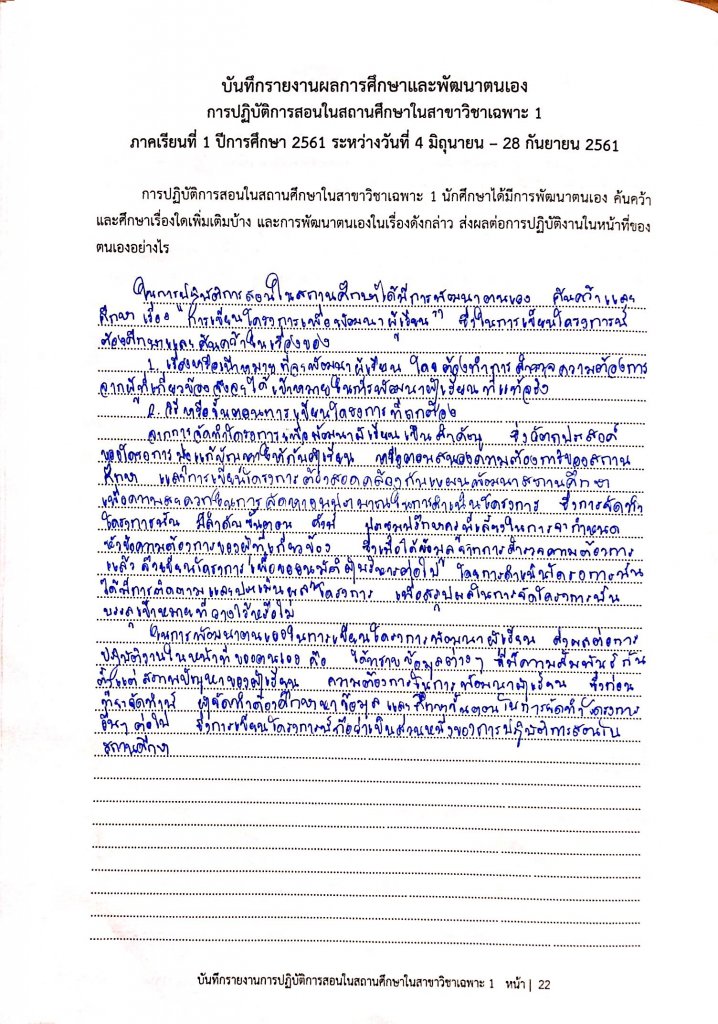 บันทึกรายงานผลการศึกษาและพัฒนาตนเอง
การปฏิบัติการสอนในสถานศึกษาในสาขาวิชาเฉพาะ 1
ภาคเรียนที่ 1 ปีการศึกษา 2561 ระหว่างวันที่ 4 มิถุนายน – 28 กันยายน 2561
การปฏิบัติการสอนในสถานศึกษาในสาขาวิชาเฉพาะ 1 นักศึกษาได้มีการพัฒนาตนเอง ค้นคว้า
และศึกษาเรื่องใดเพิ่มเติมบ้าง และการพัฒนาตนเองในเรื่องดังกล่าว ส่งผลต่อการปฏิบัติงานในหน้าที่ของ
ตนเองอย่างไร
ในการปฏิบัติการสอนในสถานศึกษาได้มีการพัฒนาตนเอง ค้นคว้าและ
ศึกษา เรื่อง "การเขียนโครงการเพื่อพัฒนาผู้เรียน" ซึ่งในการเขียนโครงการนี้
ต้องศึกษาและค้นคว้าในเรื่องของ
1. เรื่องหรือเป้าหมายที่จะพัฒนาผู้เรียน โดยต้องทำการสำรวจความต้องการ
จากผู้ที่เกี่ยวข้องจึงจะได้เป้าหมายในการพัฒนาผู้เรียนที่แท้จริง
2. วิธีหรือขั้นตอนการเขียนโครงการที่ถูกต้อง
จากการจัดทำโครงการเพื่อพัฒนาผู้เรียนเป็นสำคัญ ซึ่งวัตถุประสงค์
ของโครงการ แก้ปัญหาให้กับผู้เรียน หรือตอบสนองความต้องการของสถาน
ศึกษา และการเขียนโครงการต้องสอดคล้องกับแผนพัฒนาสถานศึกษา
เพื่อความสะดวกในการจัดหางบประมาณในการดำเนินโครงการ ซึ่งการจัดทำ
โครงการนั้น มีลำดับขั้นตอน ดังนี้ ประชุมปรึกษาครูพี่เลี้ยงในการจะกำหนด
หัวข้อความต้องการของผู้ที่เกี่ยวข้อง ซึ่งเมื่อได้ข้อมูลจากการสำรวจความต้องการ
แล้ว ก็จะเขียนโครงการเพื่อขออนุมัติผู้บริหารต่อไป โดยการดำเนินโครงการนั้น
ได้มีการติดตามและประเมินผลโครงการ เพื่อสรุปผลในการจัดโครงการนั้น
บรรลุเป้าหมายที่วางไว้หรือไม่
ในการพัฒนาตนเองในการเขียนโครงการพัฒนาผู้เรียน ส่งผลต่อการ
ปฏิบัติงานในหน้าที่ของตนเอง คือ ได้ทราบข้อมูลต่างๆ ที่มีความสัมพันธ์กัน
ตั้งแต่ สภาพปัญหาของผู้เรียน ความต้องการในการพัฒนาผู้เรียน ซึ่งก่อน
ที่จะจัดทำนี้ ผู้จัดทำต้องศึกษาหาข้อมูล และศึกษาขั้นตอนในการจัดทำโครงการ
อื่นๆ ต่อไป ซึ่งการเขียนโครงการนี้ถือว่าเป็นส่วนหนึ่งของการปฏิบัติการสอนใน
สถานศึกษา
บันทึกรายงานการปฏิบัติการสอนในสถานศึกษาในสาขาวิชาเฉพาะ 1 หน้า | 22